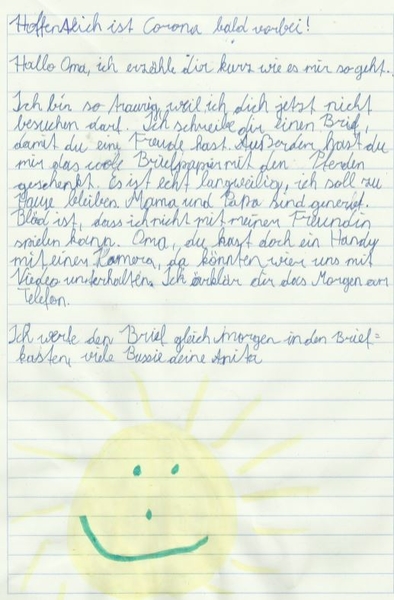 Hoffentlich ist Corona bald vorbei!
Hallo Oma, ich erzähle dir kurz wie es mir so geht.
Ich bin so traurig, weil ich dich jetzt nicht
besuchen darf. Ich schreibe dir einen Brief,
damit du eine Freude hast. Außerdem hast du
mir das coole Briefpapier mit den Pferden
geschenkt. Es ist echt langweilig, ich soll zu
Hause bleiben. Mama und Papa sind genervt.
Blöd ist, dass ich nicht mit meiner Freundin
spielen kann. Oma, du hast doch ein Handy
mit einer Kamera, da könnten wier uns mit
Viedeo unterhalten. Ich erklär dir das Morgen am
Telefon.
Ich werfe den Brief gleich morgen in den Brief=
kasten, viele Bussie deine Anita